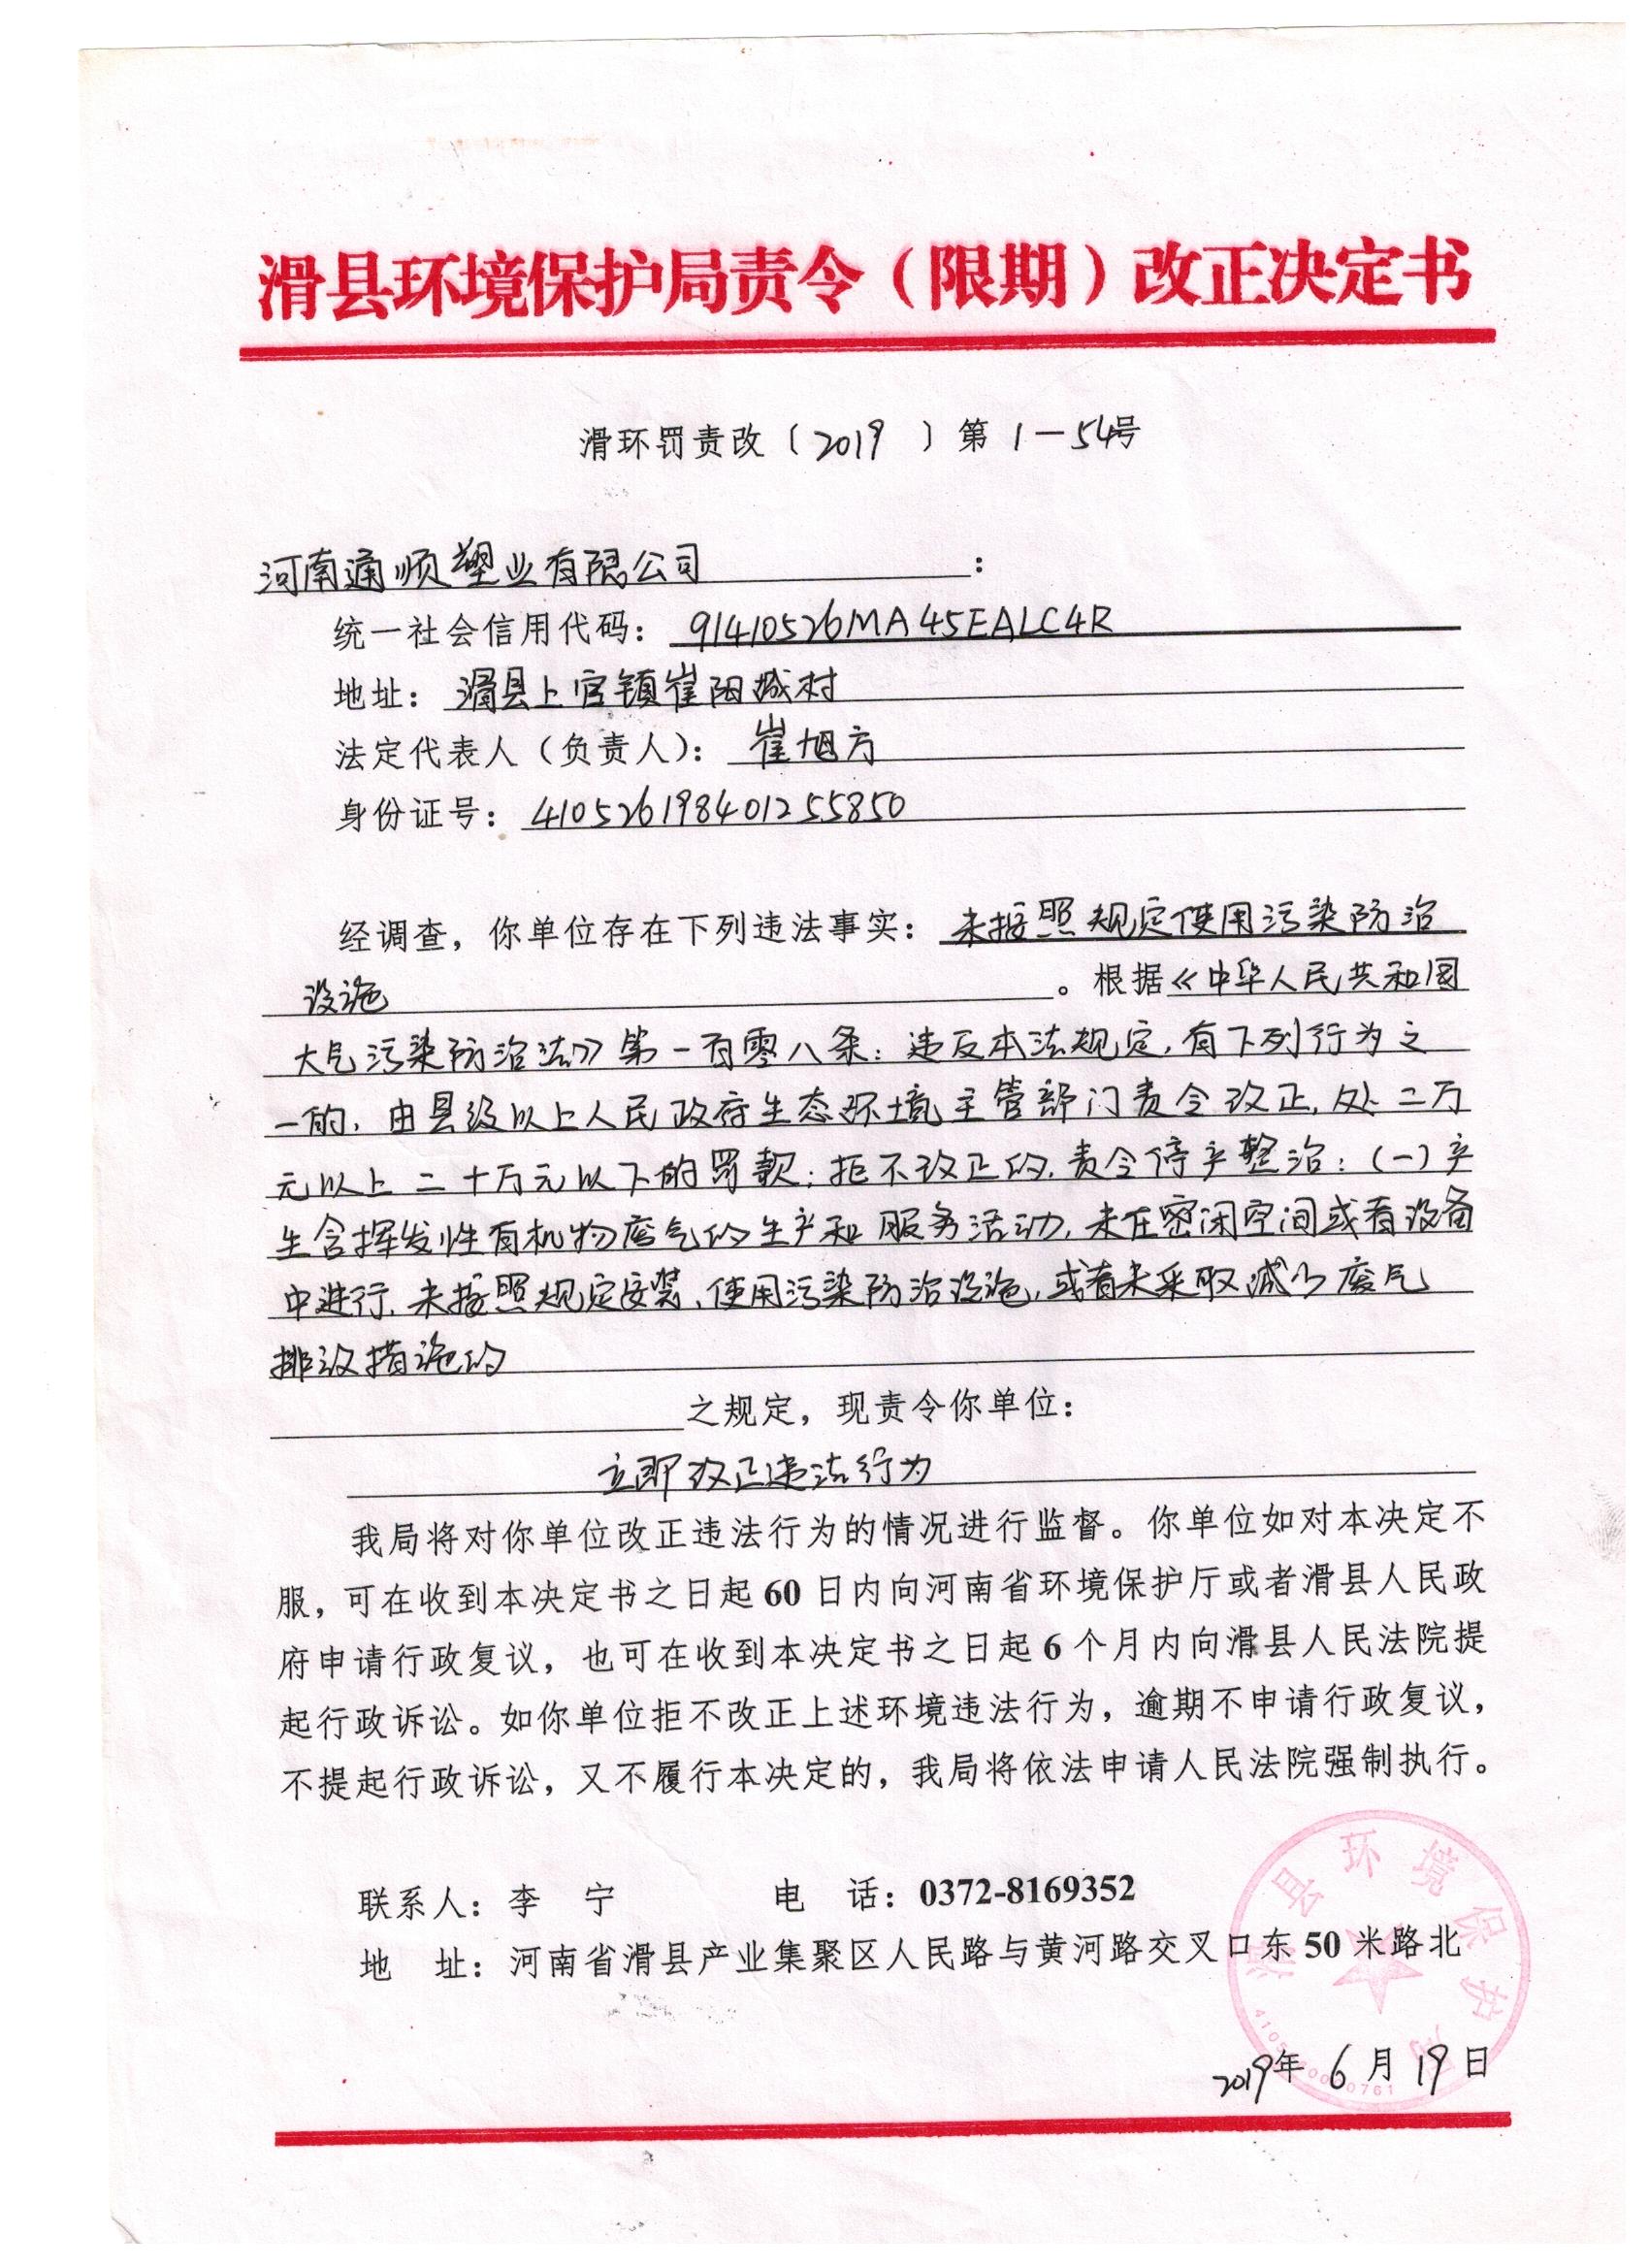 滑县环境保护局责令（限期）改正决定书
滑环罚责改〔2019〕第1-54号
河南通顺塑业有限公司：
统一社会信用代码：91410526MA45EALC4R
地址：滑县上官镇崔阳城村
法定代表人（负责人）：崔旭方
身份证号：410526198401255850
经调查，你单位存在下列违法事实：未按照规定使用污染防治
设施。根据《中华人民共和国
大气污染防治法》第一百零八条：违反本法规定，有下列行为之
一的，由县级以上人民政府生态环境主管部门责令改正，处二万
元以上二十万元以下的罚款；拒不改正的，责令停产整治：（一）产
生含挥发性有机物废气的生产和服务活动，未在密闭空间或者设备
中进行，未按照规定安装、使用污染防治设施，或者未采取减少废气
排放措施的
之规定，现责令你单位：
立即改正违法行为
我局将对你单位改正违法行为的情况进行监督。你单位如对本决定不
服，可在收到本决定书之日起60日内向河南省环境保护厅或者滑县人民政
府申请行政复议，也可在收到本决定书之日起6个月内向滑县人民法院提
起行政诉讼。如你单位拒不改正上述环境违法行为，逾期不申请行政复议，
不提起行政诉讼，又不履行本决定的，我局将依法申请人民法院强制执行。
联系人：李 宁 电 话：0372-8169352
地 址：河南省滑县产业集聚区人民路与黄河路交叉口东50米路北
滑县环境保护局
2019年6月19日